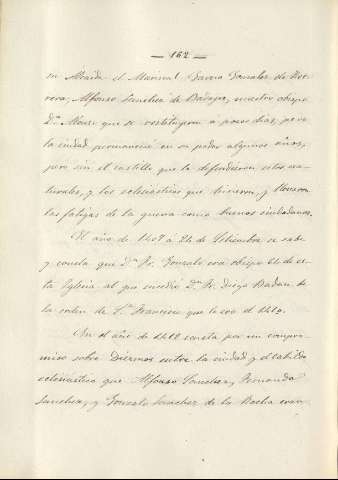 — 162 —
en Merida el Mariscal Garcia Gonzalez de Her-
rera; Alfonso Sanchez de Badajoz, nuestro obispo
D.ⁿ Alonso que se restituyeron a pocos dias, pero
la ciudad permaneció en su poder algunos años,
pero sin el castillo que la defendieron estos na-
turales, y los eclesiasticos que hicieron, y
las fatigas de la guerra como buenos ciudadanos.
El año de 1407 á 24 de Setiembre se sabe
y consta que D.ⁿ Fr. Gonzalo era obispo de es-
ta Iglesia al que sucedió D.ⁿ Fr. Diego Badan de
la orden de S.ⁿ Francisco que lo era el 1419.
En el año de 1412 consta por un compro-
miso sobre Diezmos entre la ciudad y el cabildo
eclesiastico que Alfonso Sanchez, Fernando
Sanchez, y Gonzalo Sanchez de la Rocha eran